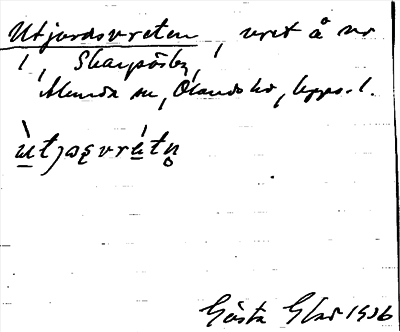 Utjordsvreten, vret å nr
1, Skarpösby,
Alunda sn, Olands hd, Upps. l.
ùtjasvrétn̥
Gösta Glas 1936